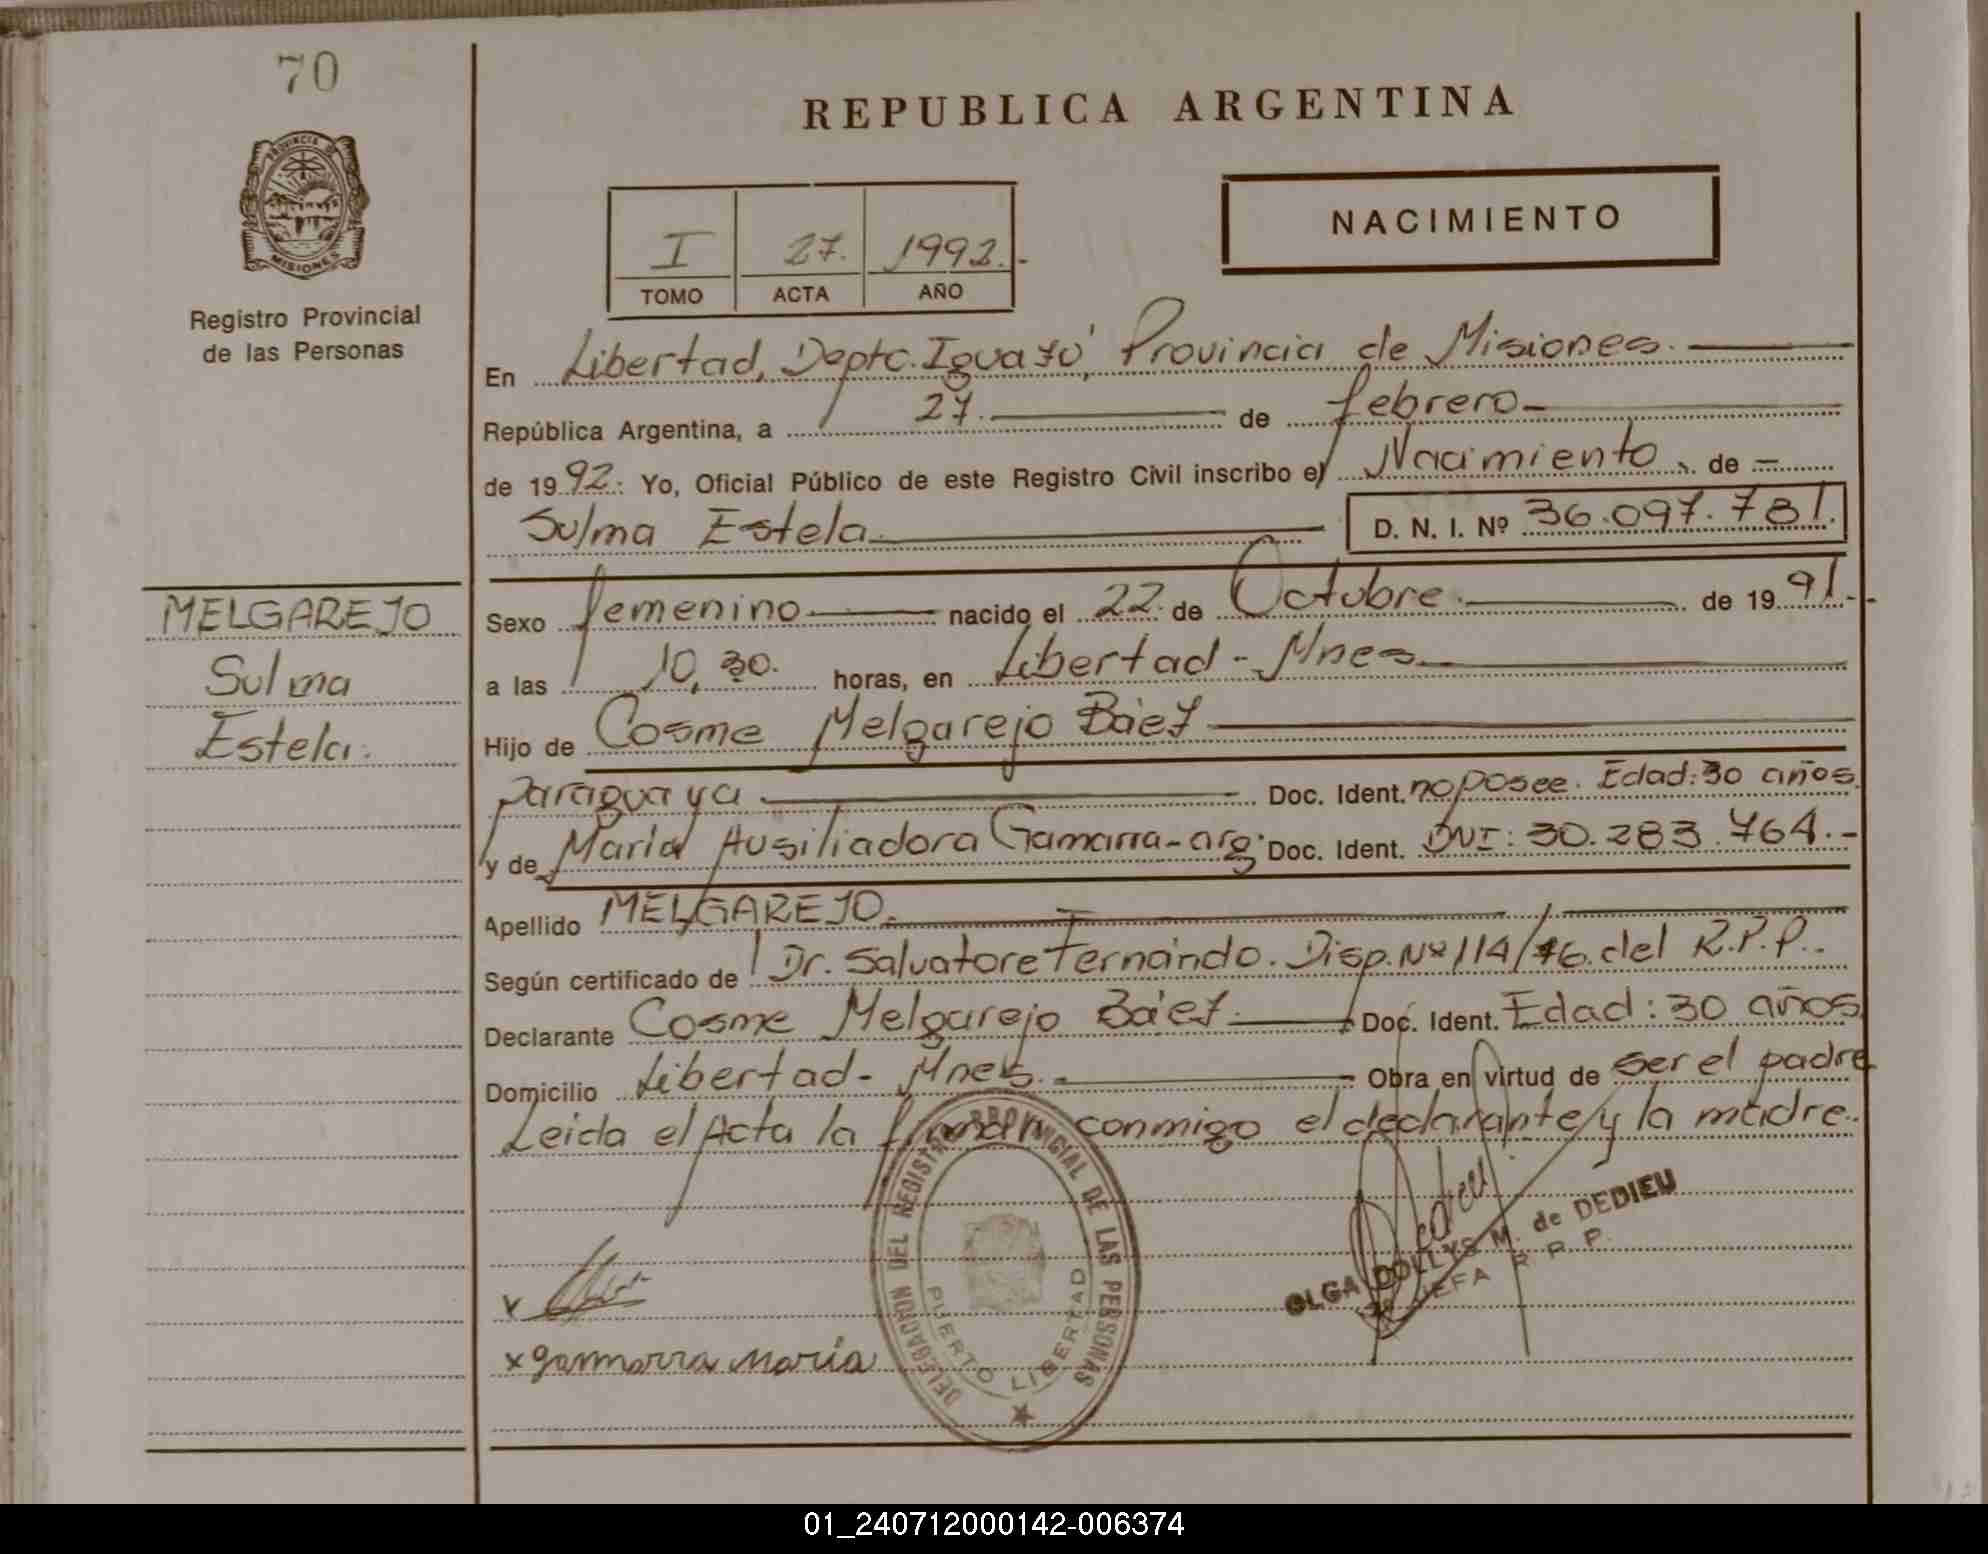 70
PROVINCIA DE
MISIONES
Registro Provincial
de las Personas
REPUBLICA ARGENTINA
I 27. 1992.-
TOMO ACTA AÑO
NACIMIENTO
En Libertad, Depto. Iguazú, Provincia de Misiones.
República Argentina, a 27. de febrero
de 1992. Yo, Oficial Público de este Registro Civil inscribo el Nacimiento de -
Sulma Estela D. N. I. Nº 36.097.781.
MELGAREJO
Sulma
Estela.
Sexo femenino nacido el 22. de Octubre. de 1991.-
a las 10,30. horas, en Libertad - Mnes
Hijo de Cosme Melgarejo Báez
paraguaya Doc. Ident. no posee. Edad: 30 años.
y de María Ausiliadora Gamarra - arg. Doc. Ident. DNI: 30.283.764.-
Apellido MELGAREJO.
Según certificado de Dr. Salvatore Fernándo. Disp. Nº 114/76. del R.P.P..
Declarante Cosme Melgarejo Báez Doc. Ident. Edad: 30 años
Domicilio Libertad - Mnes. Obra en virtud de ser el padre
Leida el Acta la firman conmigo el declarante y la madre.
DELEGACION DEL REGISTRO PROVINCIAL DE LAS PERSONAS
PUERTO LIBERTAD
OLGA DOLLYS M. de DEDIEU
JEFA R. P. P.
x gammarra maría
01_240712000142-006374